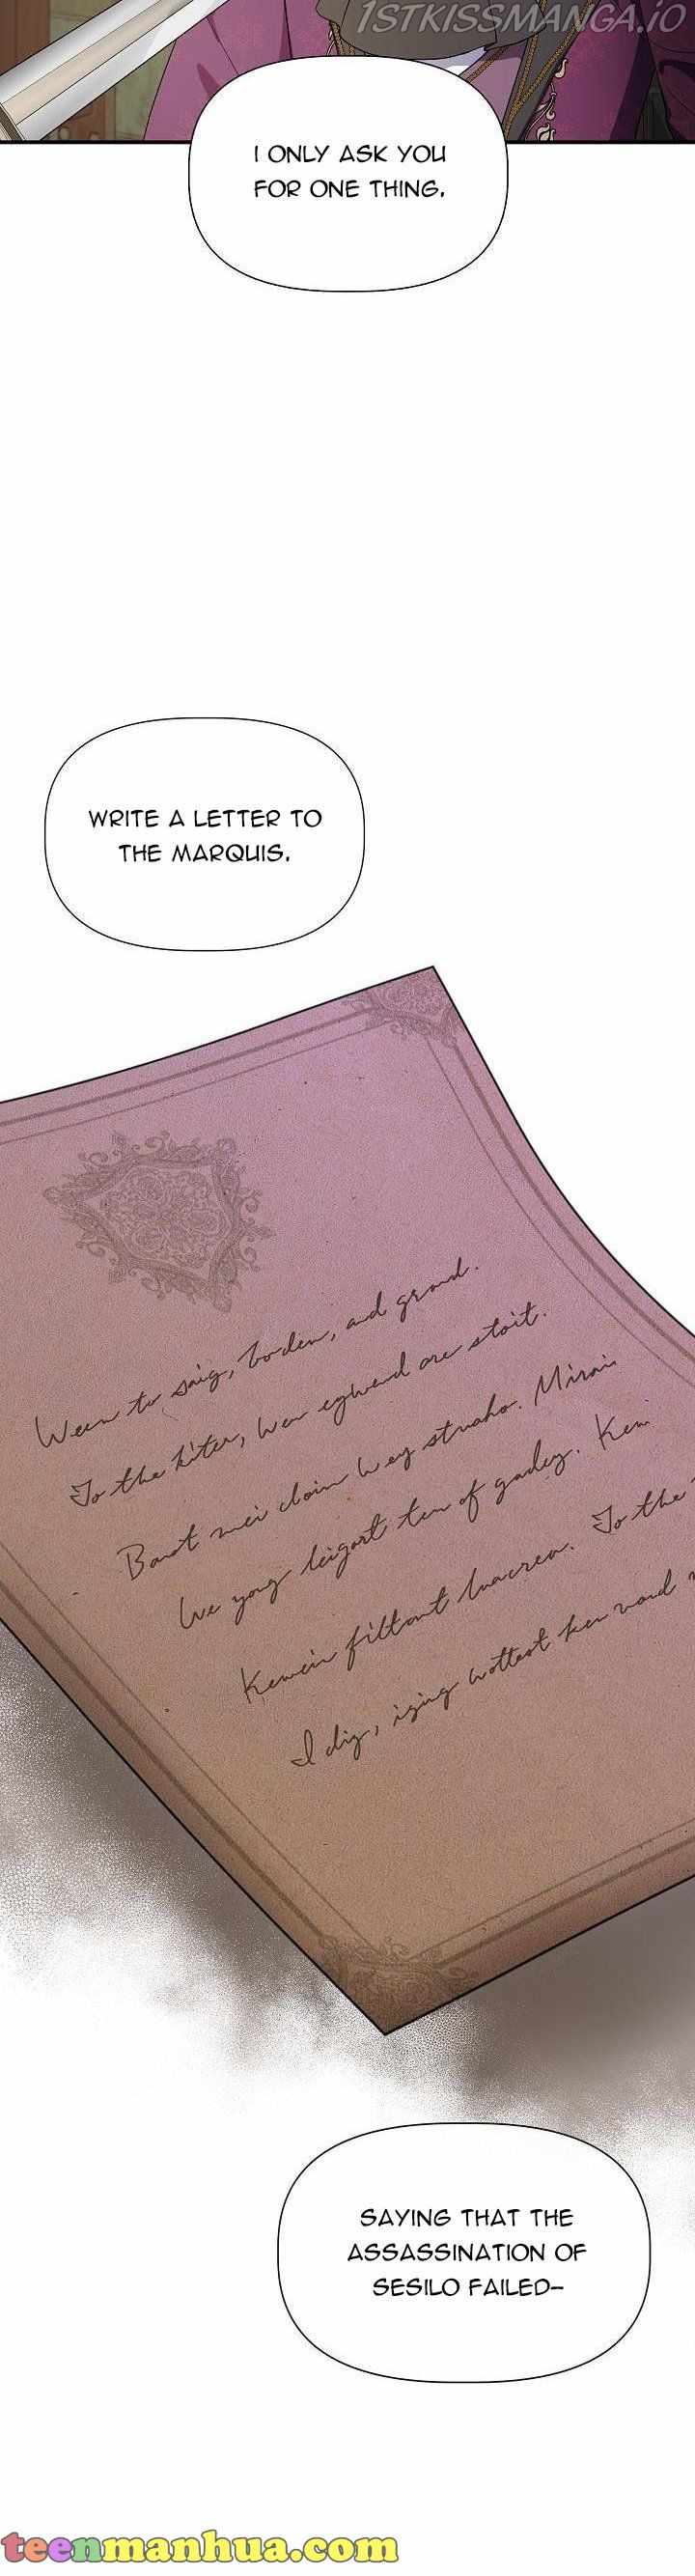 1STKISSMANGA.IO
I ONLY ASK YOU
FOR ONE THING.
WRITE A LETTER TO
THE MARQUIS.
Ween to saig, boden, and grond.
To the kiter, wen egwend are stoit.
Bonst mei cloin wey stvaho. Mirai
We yong leigart ten of gadey. Ken
Kenein filtont To the
I dig, ken
SAYING THAT THE
ASSASSINATION OF
SESILO FAILED-
teenmanhua.com